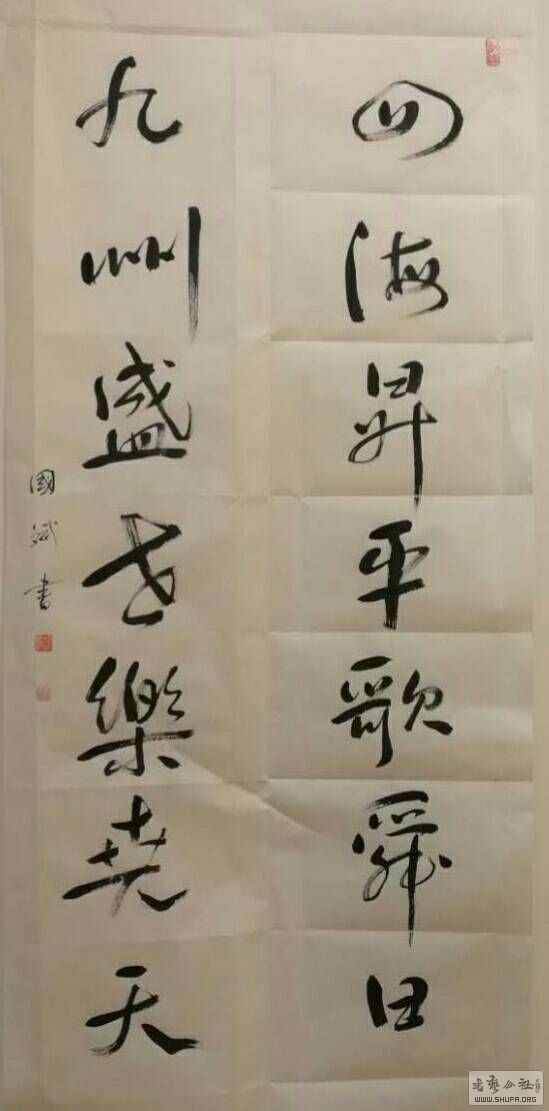 四海昇平歌舜日
九州盛世樂堯天
國斌書
書藝公社
WWW.SHUFA.ORG